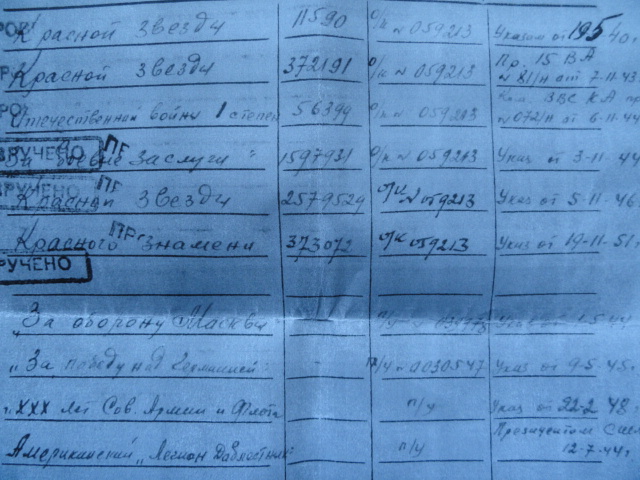 Красной Звезды 11590 о/к № 059213 Указом от 19.5.40г.
Красной Звезды 372191 о/к № 059213 Пр. 15 ВА
от 7-11-43
Отечественной войны I степен 56399 о/к № 059213 ВВС КА
от 6-11-44
ВРУЧЕНО
За боевые заслуги" 1597931 о/к № 059213 Указ от 3-11-44
ВРУЧЕНО
Красной Звезды 2579529 о/к № 059213 Указ от 5-11-46
Красного Знамени 373072 о/к 059213 Указ от 19-11-51г.
РУЧЕНО
„За оборону Москвы
„За победу над Германией" - п/у № 0030547 Указ от 9-5-45г.
„XXX лет Сов. Армии и Флота п/у Указ от 22-2 48
Президентом
Американский „Легион п/у 12-7-44г.